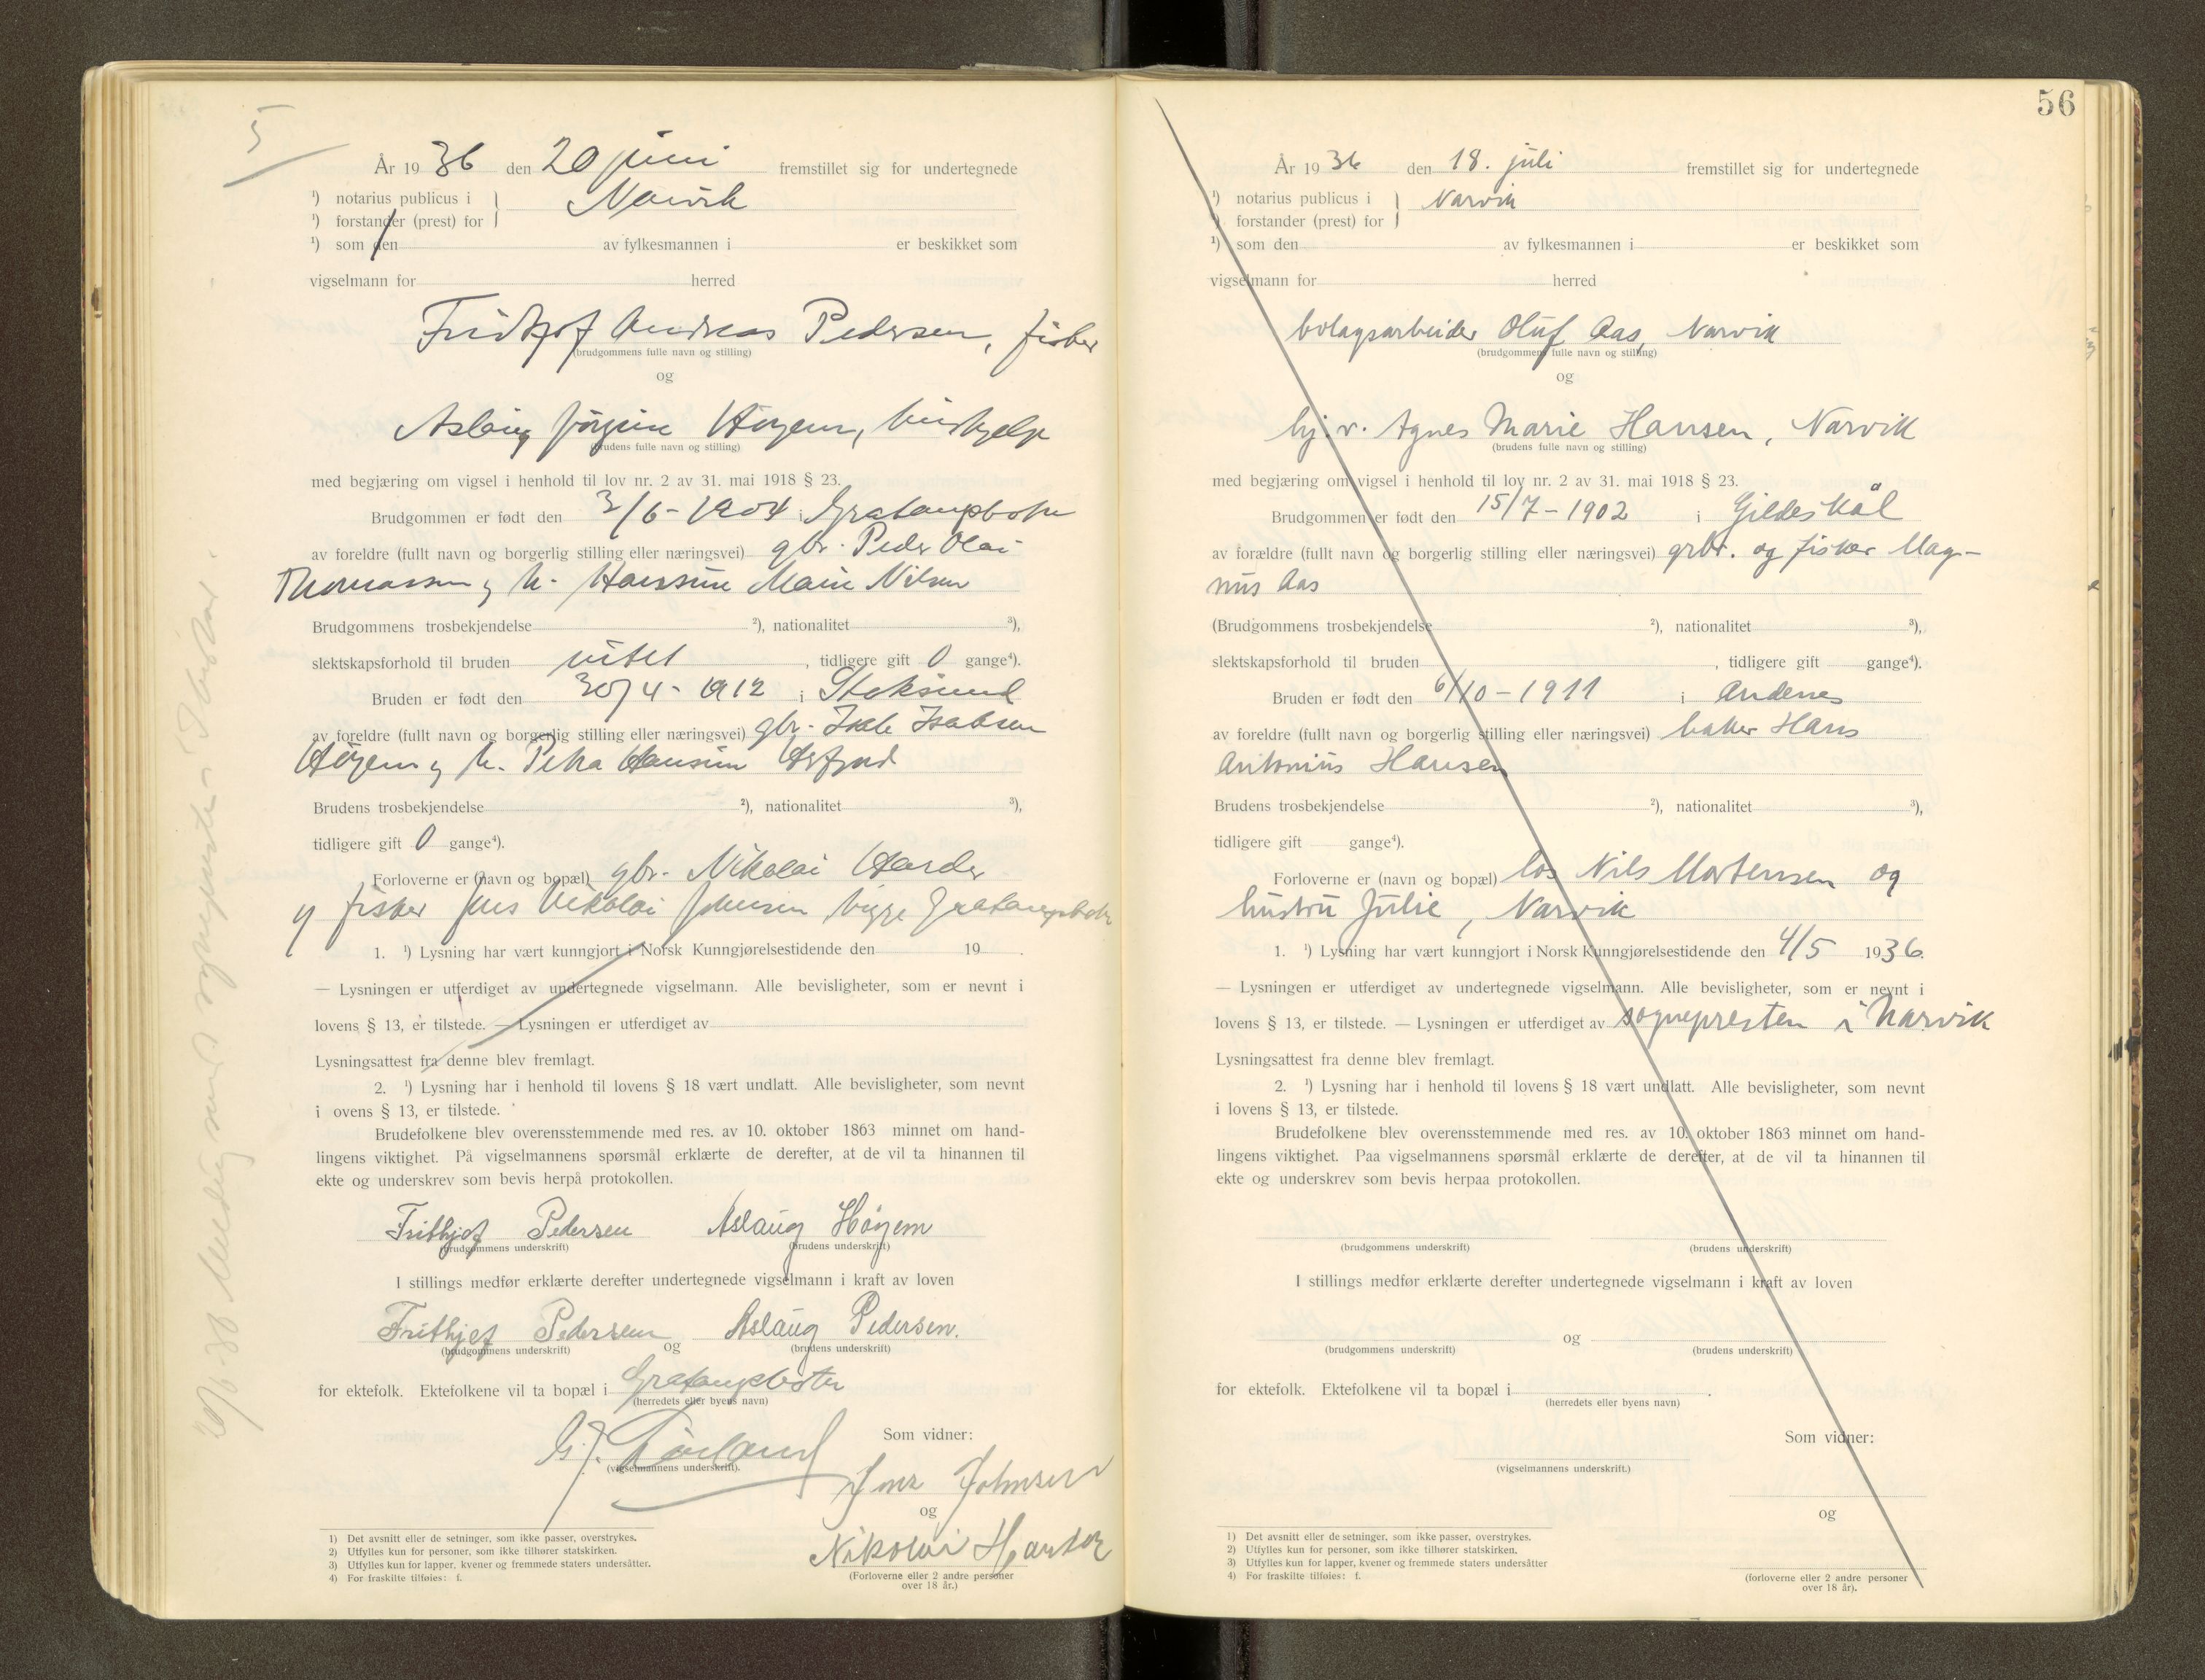 5
År 1936 den 20 juni fremstillet sig for undertegnede
¹) notarius publicus i } Narvik
¹) forstander (prest) for
¹) som den av fylkesmannen i er beskikket som
vigselmann for herred
Fridtjof Andreas Pedersen, fisker
(brudgommens fulle navn og stilling)
og
Aslaug Jørgine Høyem, hushjelp
(brudens fulle navn og stilling)
med begjæring om vigsel i henhold til lov nr. 2 av 31. mai 1918 § 23.
Brudgommen er født den 3/6 - 1904 i Gratangsbotn
av foreldre (fullt navn og borgerlig stilling eller næringsvei) gbr. Peder Olai
Thomassen og h. Hanssine Marie Nilsen
Brudgommens trosbekjendelse ²), nationalitet ³),
slektskapsforhold til bruden intet, tidligere gift 0 gange⁴).
Bruden er født den 30/4 - 1912 i Stoksund
av foreldre (fullt navn og borgerlig stilling eller næringsvei) gbr. Isak Isaksen
Høyem og h. Petra Hansine
Brudens trosbekjendelse ²), nationalitet ³),
tidligere gift 0 gange⁴).
Forloverne er (navn og bopæl) gbr. Nikolai
og fisker Jens Nikolai Johnsen begge Gratangsbotn
1. ¹) Lysning har vært kunngjort i Norsk Kunngjørelsestidende den 19 .
— Lysningen er utferdiget av undertegnede vigselmann. Alle bevisligheter, som er nevnt i
lovens § 13, er tilstede. — Lysningen er utferdiget av
Lysningsattest fra denne blev fremlagt.
2. ¹) Lysning har i henhold til lovens § 18 vært undlatt. Alle bevisligheter, som nevnt
i ovens § 13, er tilstede.
Brudefolkene blev overensstemmende med res. av 10. oktober 1863 minnet om hand-
lingens viktighet. På vigselmannens spørsmål erklærte de derefter, at de vil ta hinannen til
ekte og underskrev som bevis herpå protokollen.
Frithjof Pedersen Aslaug Høyem
(brudgommens underskrift) (brudens underskrift)
I stillings medfør erklærte derefter undertegnede vigselmann i kraft av loven
Frithjof Pedersen og Aslaug Pedersen.
(brudgommens underskrift) (brudens underskrift)
for ektefolk. Ektefolkene vil ta bopæl i Gratangsbotn
(herredets eller byens navn)
Som vidner:
(vigselmannens underskrift).
Jens Johnsen
og
Nikolai
(Forloverne eller 2 andre personer
over 18 år.)
1) Det avsnitt eller de setninger, som ikke passer, overstrykes.
2) Utfylles kun for personer, som ikke tilhører statskirken.
3) Utfylles kun for lapper, kvener og fremmede staters undersåtter.
4) For fraskilte tilføies: f.
20/6-36 Melding sendt sognepresten i Ibestad.
56
År 1936 den 18. juli fremstillet sig for undertegnede
¹) notarius publicus i } Narvik
¹) forstander (prest) for
¹) som den av fylkesmannen i er beskikket som
vigselmann for herred
bolagsarbeider Oluf Aas, Narvik
(brudgommens fulle navn og stilling)
og
hj.v. Agnes Marie Hansen, Narvik
(brudens fulle navn og stilling)
med begjæring om vigsel i henhold til lov nr. 2 av 31. mai 1918 § 23.
Brudgommen er født den 15/7 - 1902 i Gildeskål
av forældre (fullt navn og borgerlig stilling eller næringsvei) grbr. og fisker Mag-
nus Aas
(Brudgommens trosbekjendelse ²), nationalitet ³),
slektskapsforhold til bruden , tidligere gift gange⁴).
Bruden er født den 6/10 - 1911 i Andenes
av foreldre (fullt navn og borgerlig stilling eller næringsvei) baker Hans
Antonius Hansen
Brudens trosbekjendelse ²), nationalitet ³),
tidligere gift gange⁴).
Forloverne er (navn og bopæl) los Nils Mortensen og
hustru Julie, Narvik
1. ¹) Lysning har vært kunngjort i Norsk Kunngjørelsestidende den 4/5 1936.
— Lysningen er utferdiget av undertegnede vigselmann. Alle bevisligheter, som er nevnt i
lovens § 13, er tilstede. — Lysningen er utferdiget av sognepresten i Narvik
Lysningsattest fra denne blev fremlagt.
2. ¹) Lysning har i henhold til lovens § 18 vært undlatt. Alle bevisligheter, som nevnt
i lovens § 13, er tilstede.
Brudefolkene blev overensstemmende med res. av 10. oktober 1863 minnet om hand-
lingens viktighet. Paa vigselmannens spørsmål erklærte de derefter, at de vil ta hinannen til
ekte og underskrev som bevis herpaa protokollen.
(brudgommens underskrift) (brudens underskrift)
I stillings medfør erklærte derefter undertegnede vigselmann i kraft av loven
og
(brudgommens underskrift) (brudens underskrift)
for ektefolk. Ektefolkene vil ta bopæl i .
(herredets eller byens navn)
Som vidner:
(vigselmannens underskrift.)
og
(forloverne eller 2 andre personer
over 18 år).
1) Det avsnitt eller de setninger, som ikke passer, overstrykes.
2) Utfylles kun for personer, som ikke tilhører statskirken.
3) Utfylles kun for lapper, kvener og fremmede staters undersåtter
4) For fraskilte tilføies: f.